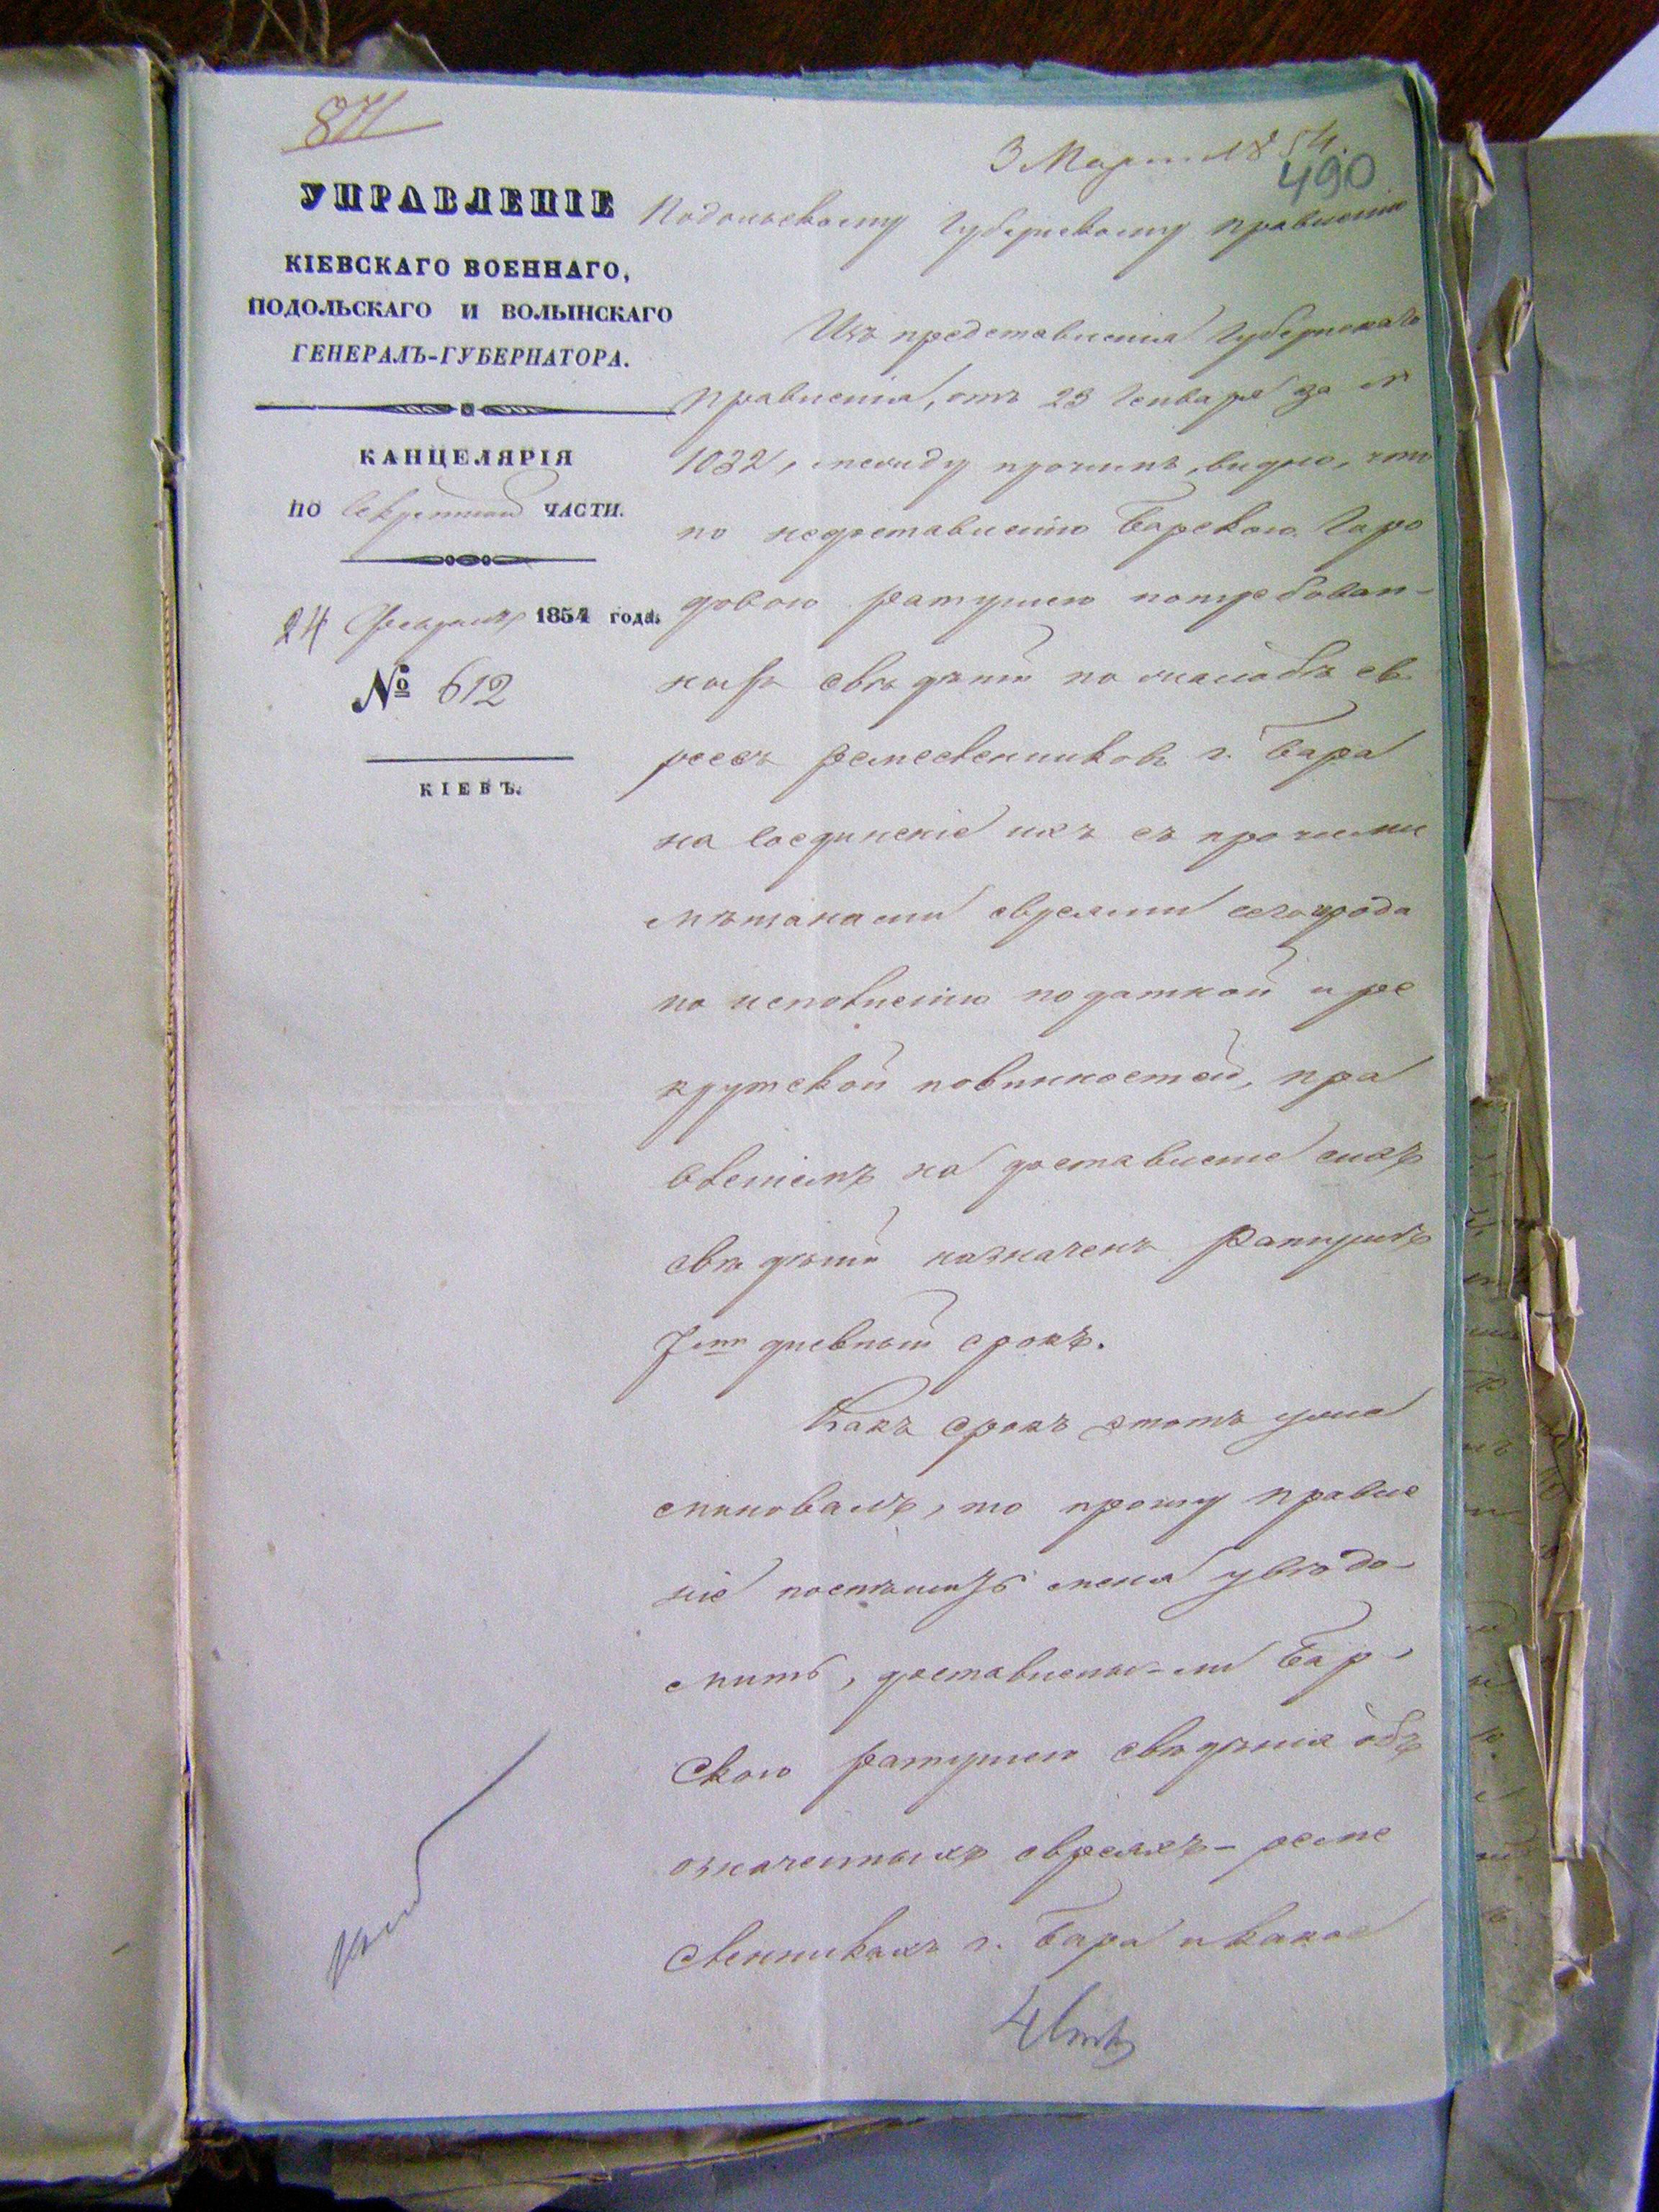 871
3 Марта 1854.
490
УПРАВЛЕНІЕ
КІЕВСКАГО ВОЕННАГО,
ПОДОЛЬСКАГО И ВОЛЫНСКАГО
ГЕНЕРАЛЪ-ГУБЕРНАТОРА.
КАНЦЕЛЯРІЯ
ПО Секретной ЧАСТИ.
24 Февраля 1854 года.
№ 612
КІЕВЪ.
Подольскому Губернскому Правленію
Изъ представленія Губернскаго
Правленія, отъ 23 Генваря за №
1032, между прочимъ, видно, что
по недоставленію Барскою Горо
довою ратушею потребован-
ныхъ свѣдѣній по жалобѣ ев
реевъ ремесленниковъ г. Бара
на соединеніе ихъ съ прочими
мѣщанами евреями сего города
по исполненію податной и ре
крутской повинностей, Пра
вленіемъ на доставленіе сихъ
свѣдѣній назначенъ Ратушѣ
7ми дневный срокъ.
Какъ срокъ этотъ уже
миновалъ, то прошу Правле
ніе поспѣшить меня увѣдо-
мить, доставлены-ли Бар
скою ратушею свѣдѣнія объ
означенныхъ евреяхъ-реме
сленникахъ г. Бара и какое